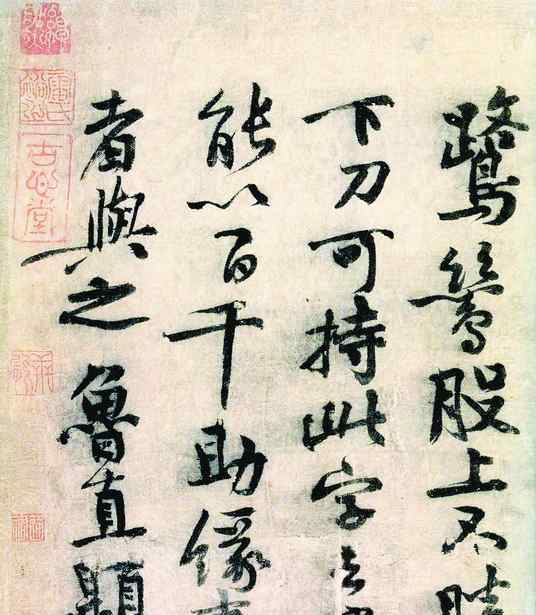 鷺鷥股上不
下刀可持此字
能以百千助緣
者與之 魯直題
古心堂